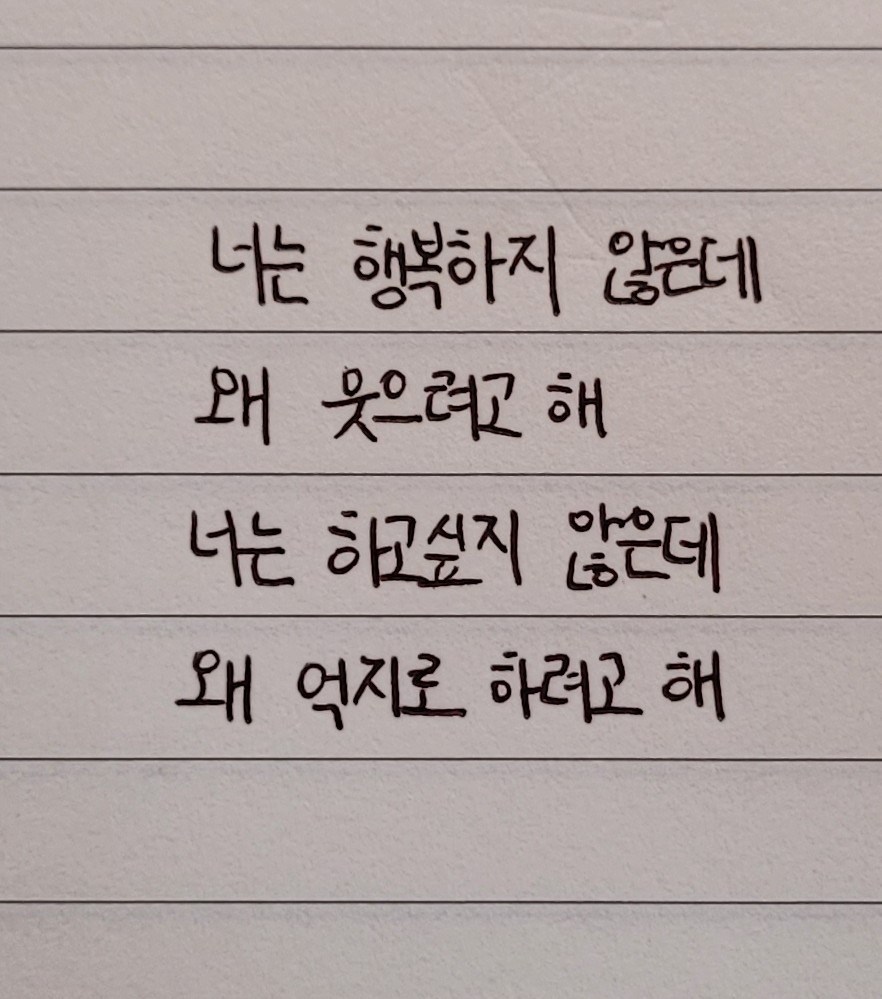 너는 행복하지 않은데
왜 웃으려고 해
너는 하고싶지 않은데
왜 억지로 하려고 해